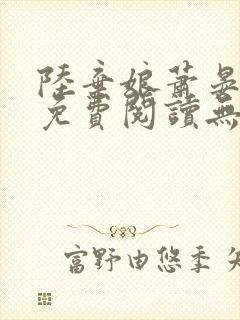 陸棄娘蕭晏
免費閱讀無
富野由悠季 矢